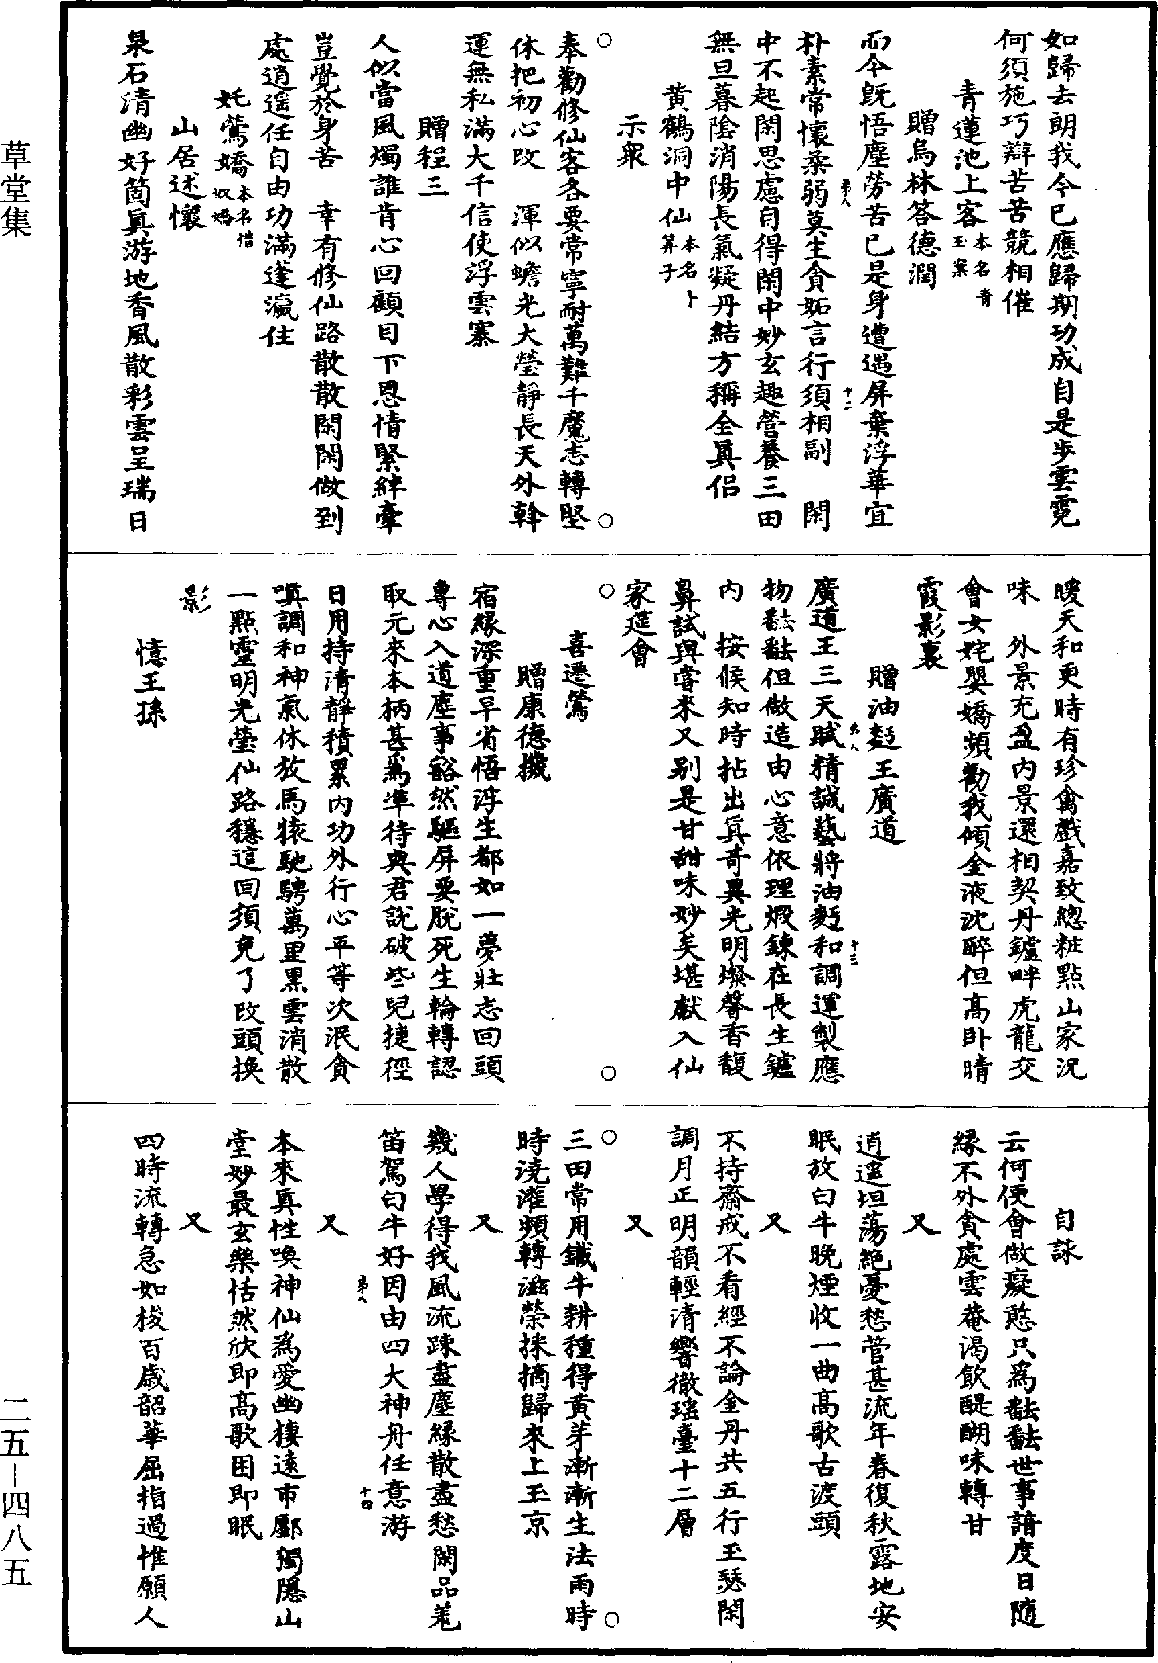 如歸去朗我今已應歸期功成自是步雲霓
何須施巧辯苦苦競相催
青蓮池上客本名青玉案
贈烏林答德潤
而今既悟塵勞苦已是身遭遇屏棄浮華宜
朴素常懷柔弱莫生貪妬言行須相副　閑
中不起閑思慮自得閑中妙玄趣營養三田
無旦暮陰消陽長氣凝丹結方稱全真侶
黃鶴洞中仙本名卜算子
示衆
奉勸修仙客各要常寧耐萬難千魔志轉堅
休把初心改　渾似蟾光大瑩靜長天外斡
運無私滿大千信使浮雲寨
贈程三
人似當風燭誰肯心回顧目下恩情緊絆牽
豈覺於身苦　幸有修仙路散散閑閑做到
處逍遙任自由功滿蓬瀛住
妊鶯嬌本名惜奴嬌
山居述懷
泉石清幽好箇真游地香風散彩雲呈瑞日
暖天和更時有珍禽戲嘉致總粧點山家況
味　外景充盈內景還相契丹鑪畔虎龍交
會女姹嬰嬌頻勸我傾金液沈醉但高卧晴
霞影裏
贈油麪王廣道
廣道王三天賦精誠藝將油麪和調運製應
物㗊㗊但做造由心意依理煅鍊在長生鑪
內　按候知時拈出真奇異光明燦馨香馥
鼻試與嘗來又別是甘甜味妙矣堪獻入仙
家筵會
喜遷鶯
贈康德機
宿緣深重早省悟浮生都如一夢壯志回頭
專心入道塵事豁然驅屏要脫死生輪轉認
取元來本柄甚爲準待與君說破些兒捷徑
日用持清靜積累內功外行心平等次泯貪
嗔調和神氣休放馬猿馳騁萬里黑雲消散
一點靈明光瑩仙路穩這回須免了改頭換
影
憶王孫
自詠
云何便會做癡憨只爲㗊㗊世事諳度日隨
緣不外貪處雲菴渴飲醍醐味轉甘
又
逍遙坦蕩絕憂愁管甚流年春復秋露地安
眠放白牛晚煙收一曲高歌古渡頭
又
不持齋戒不看經不論金丹共五行玉瑟閑
調月正明韻輕清響徹瑤臺十二層
又
三田常用鐵牛耕種得黃芽漸漸生法雨時
時澆灌頻轉滋榮採摘歸來上玉京
又
幾人學得我風流踈盡塵緣散盡愁閑品羌
笛駕白牛好因由四大神舟任意游
又
本來真性喚神仙爲愛幽棲遠市鄽獨隱山
堂妙最玄樂恬然欣即高歌困即眠
又
四時流轉急如梭百歲韶華屈指過惟願人
草堂集
二五—四八五